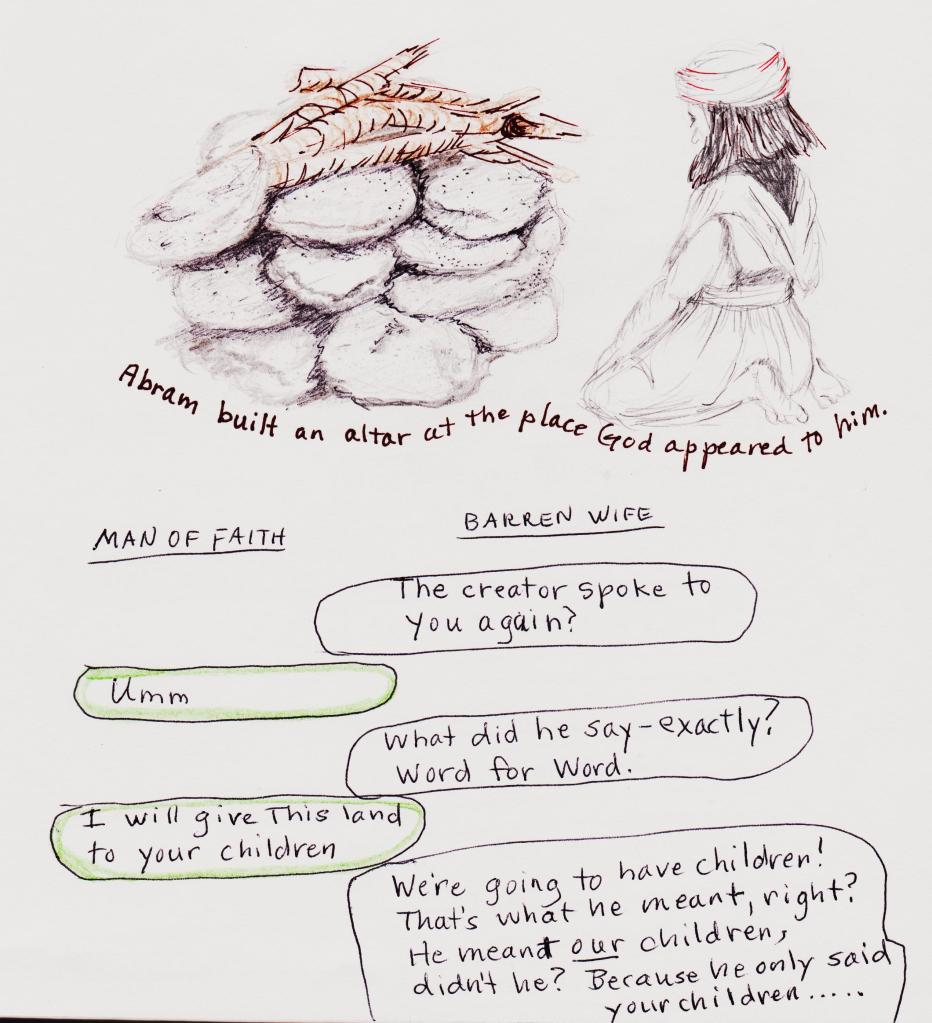 Abram built an altar at the place God appeared to him.
MAN OF FAITH
BARREN WIFE
The creator spoke to
you again?
Umm
What did he say-exactly?
Word for Word.
I will give This land
to your children
We're going to have children!
That's what he meant, right?
He meant our children,
didn't he? Because he only said
your children.....